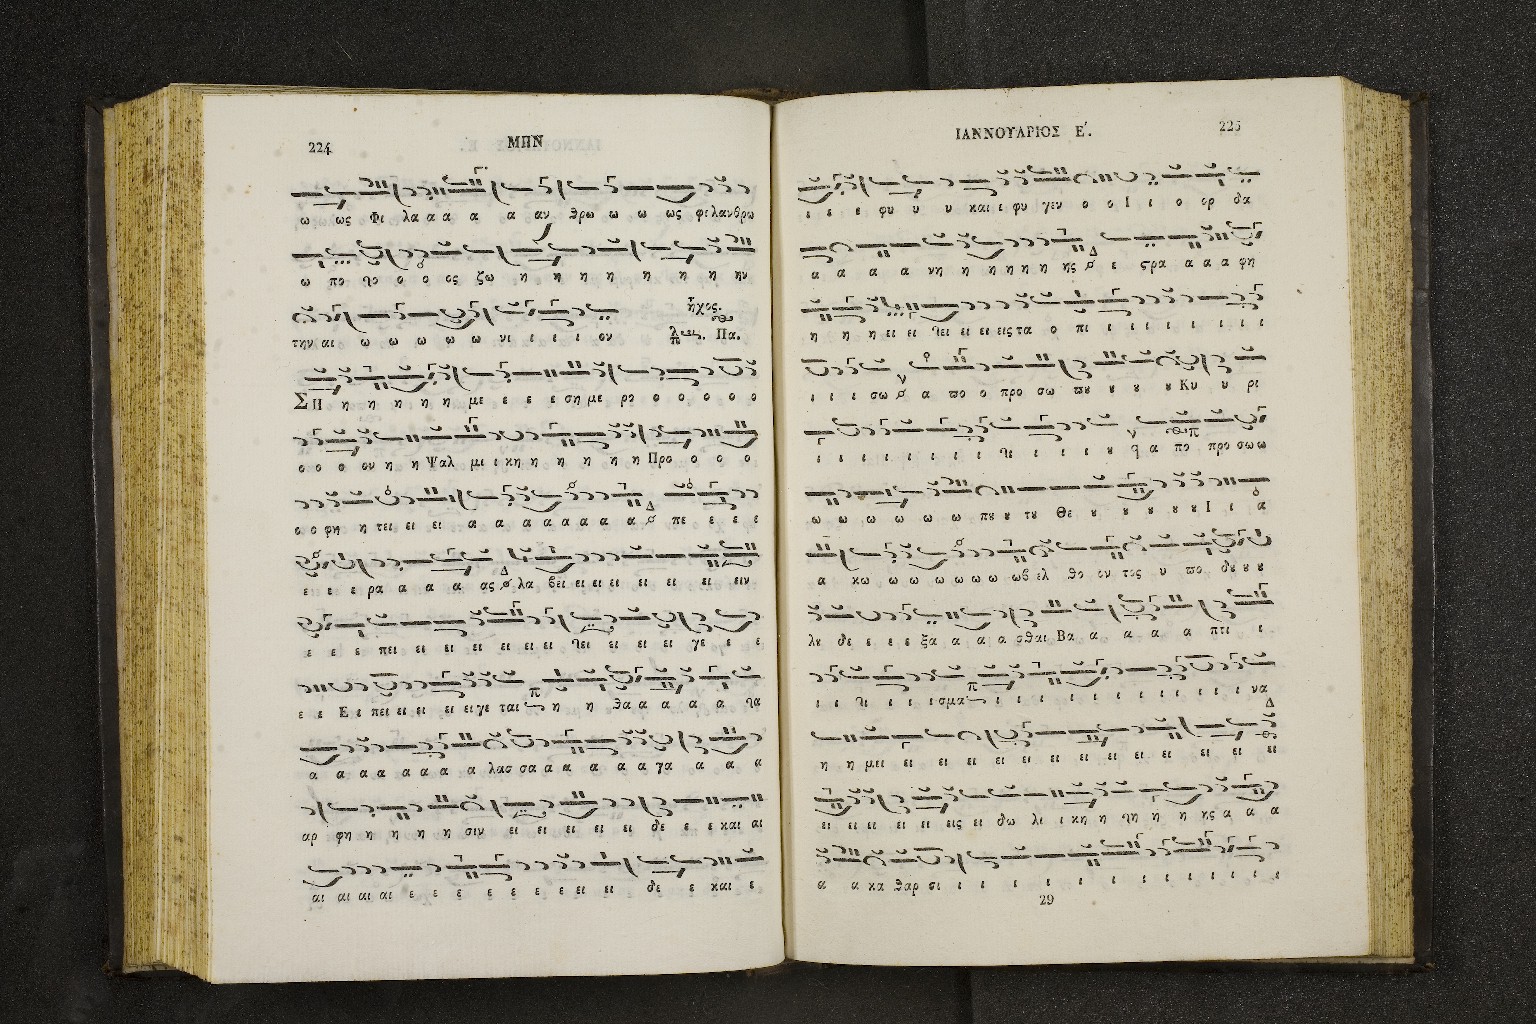 224
ΜΗΝ
ω ως Φι λα α α α α αν θρω ω ω ως φιλανθρω
ω πο το ο ο ος ζω η η η η η η η ην
ἦχος.
την αι ω ω ω ω ω νι ι ι ι ον Πα.
Ση η η η η η με ε ε ε ση με ρο ο ο ο ο ο
ο ο ο ον η η Ψαλ μι ι κη η η η η η Προ ο ο ο
ο ο φη η τει ει ει α α α α α α α α πε ε ε ε
ε ε ε ρα α α α ας λα βει ει ει ει ει ει ει ει ειν
ε ε ε πει ει ει ει ει ει ει τει ει ει ει γε ε ε
ε ε Ε ε πει ει ει ει ει γε ται η η θα α α α α τα
α α α α α α α α λασ σα α α α α α γα α α α
αρ φη η η η η σιν ει ει ει ει ει ει δε ε ε και αι
αι αι αι αι ε ε ε ε ε ε ε ει ει ει δε ε και ε
ΙΑΝΝΟΥΑΡΙΟΣ Ε΄.
225
ε ε ε φυ υ υ και ε φυ γεν ο ο Ι ι ο ορ δα
α α α α νη η η η η η ης ε στρα α α α φη
η η η ει ει τει ει ει ει εις τα ο πι ι ι ι ι ι ι ι
ι ι ι σω α πο ο προ σω που ου ου ου Κυ υ ρι
ι ι ι ι ι ι ι τι ι ι ι ου α πο προ σω ω
ω ω ω ω ω ω που ου του Θε ου ου ου ου ου Ι ι α
α κω ω ω ω ω ω ω ωβ ελ θο ον τος υ πο δου ου ου
λου δε ε ε ε ξα α α α σθαι Βα α α α α πτι ι
ι ι τι ι ι ι σμα ι ι ι ι ι ι ι ι ι ι ι ι να
η η μει ει ει ει ει ει ει ει ει ει ει ει ει ει
ει ει ει ει ει ει εις ει δω λι ι κη η τη η η κς α α α
α α κα θαρ σι ι ι ι ι ι ι ι ι ι ι ι ι ι
29